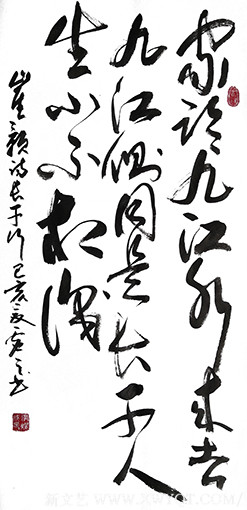 家临九江水来去
九江侧同是长干人
生小不相识
崔颢诗长干行己亥夏 书
新文艺